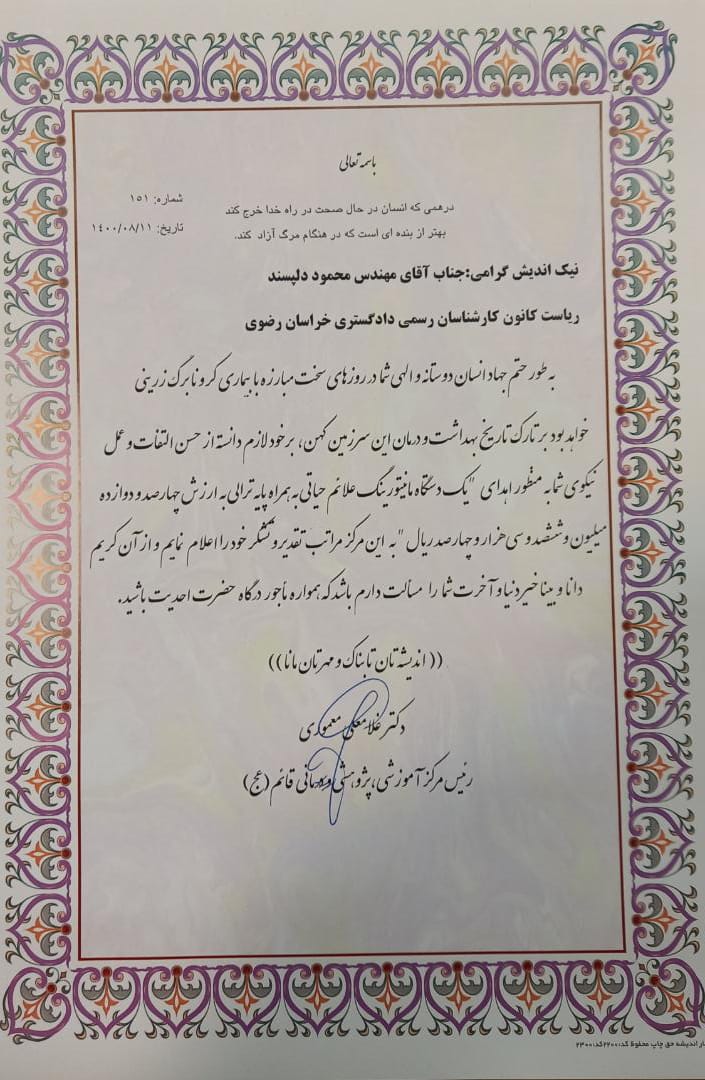 باسمه تعالی
شماره: ۱۵۱
درهمی که انسان در حال صحت در راه خدا خرج کند
تاریخ: ۱۴۰۰/۰۸/۱۱
بهتر از بنده ای است که در هنگام مرگ آزاد کند.
نیک اندیش گرامی:جناب آقای مهندس محمود دلپسند
ریاست کانون کارشناسان رسمی دادگستری خراسان رضوی
به طور حتم جهاد انسان دوستانه و الهی شما در روزهای سخت مبارزه با بیماری کرونا برگ زرینی
خواهد بود بر تارک تاریخ بهداشت و درمان این سرزمین کهن، بر خود لازم دانسته از حسن التفات و عمل
نیکوی شما به منظور اهدای "یک دستگاه مانیتورینگ علائم حیاتی به همراه پایه ترالی به ارزش چهارصد و دوازده
میلیون و ششصد و سی هزار و چهارصد ریال "به این مرکز مراتب تقدیر و تشکر خود را اعلام نمایم و از آن کریم
دانا و بینا خیر دنیا و آخرت شما را مسألت دارم باشد که همواره مأجور درگاه حضرت احدیت باشید.
(( اندیشه تان تابناک و مهرتان مانا))
دکتر غلامعلی معموری
رئیس مرکز آموزشی،پژوهشی و درمانی قائم (عج)
اندیشه حق چاپ محفوظ کد: